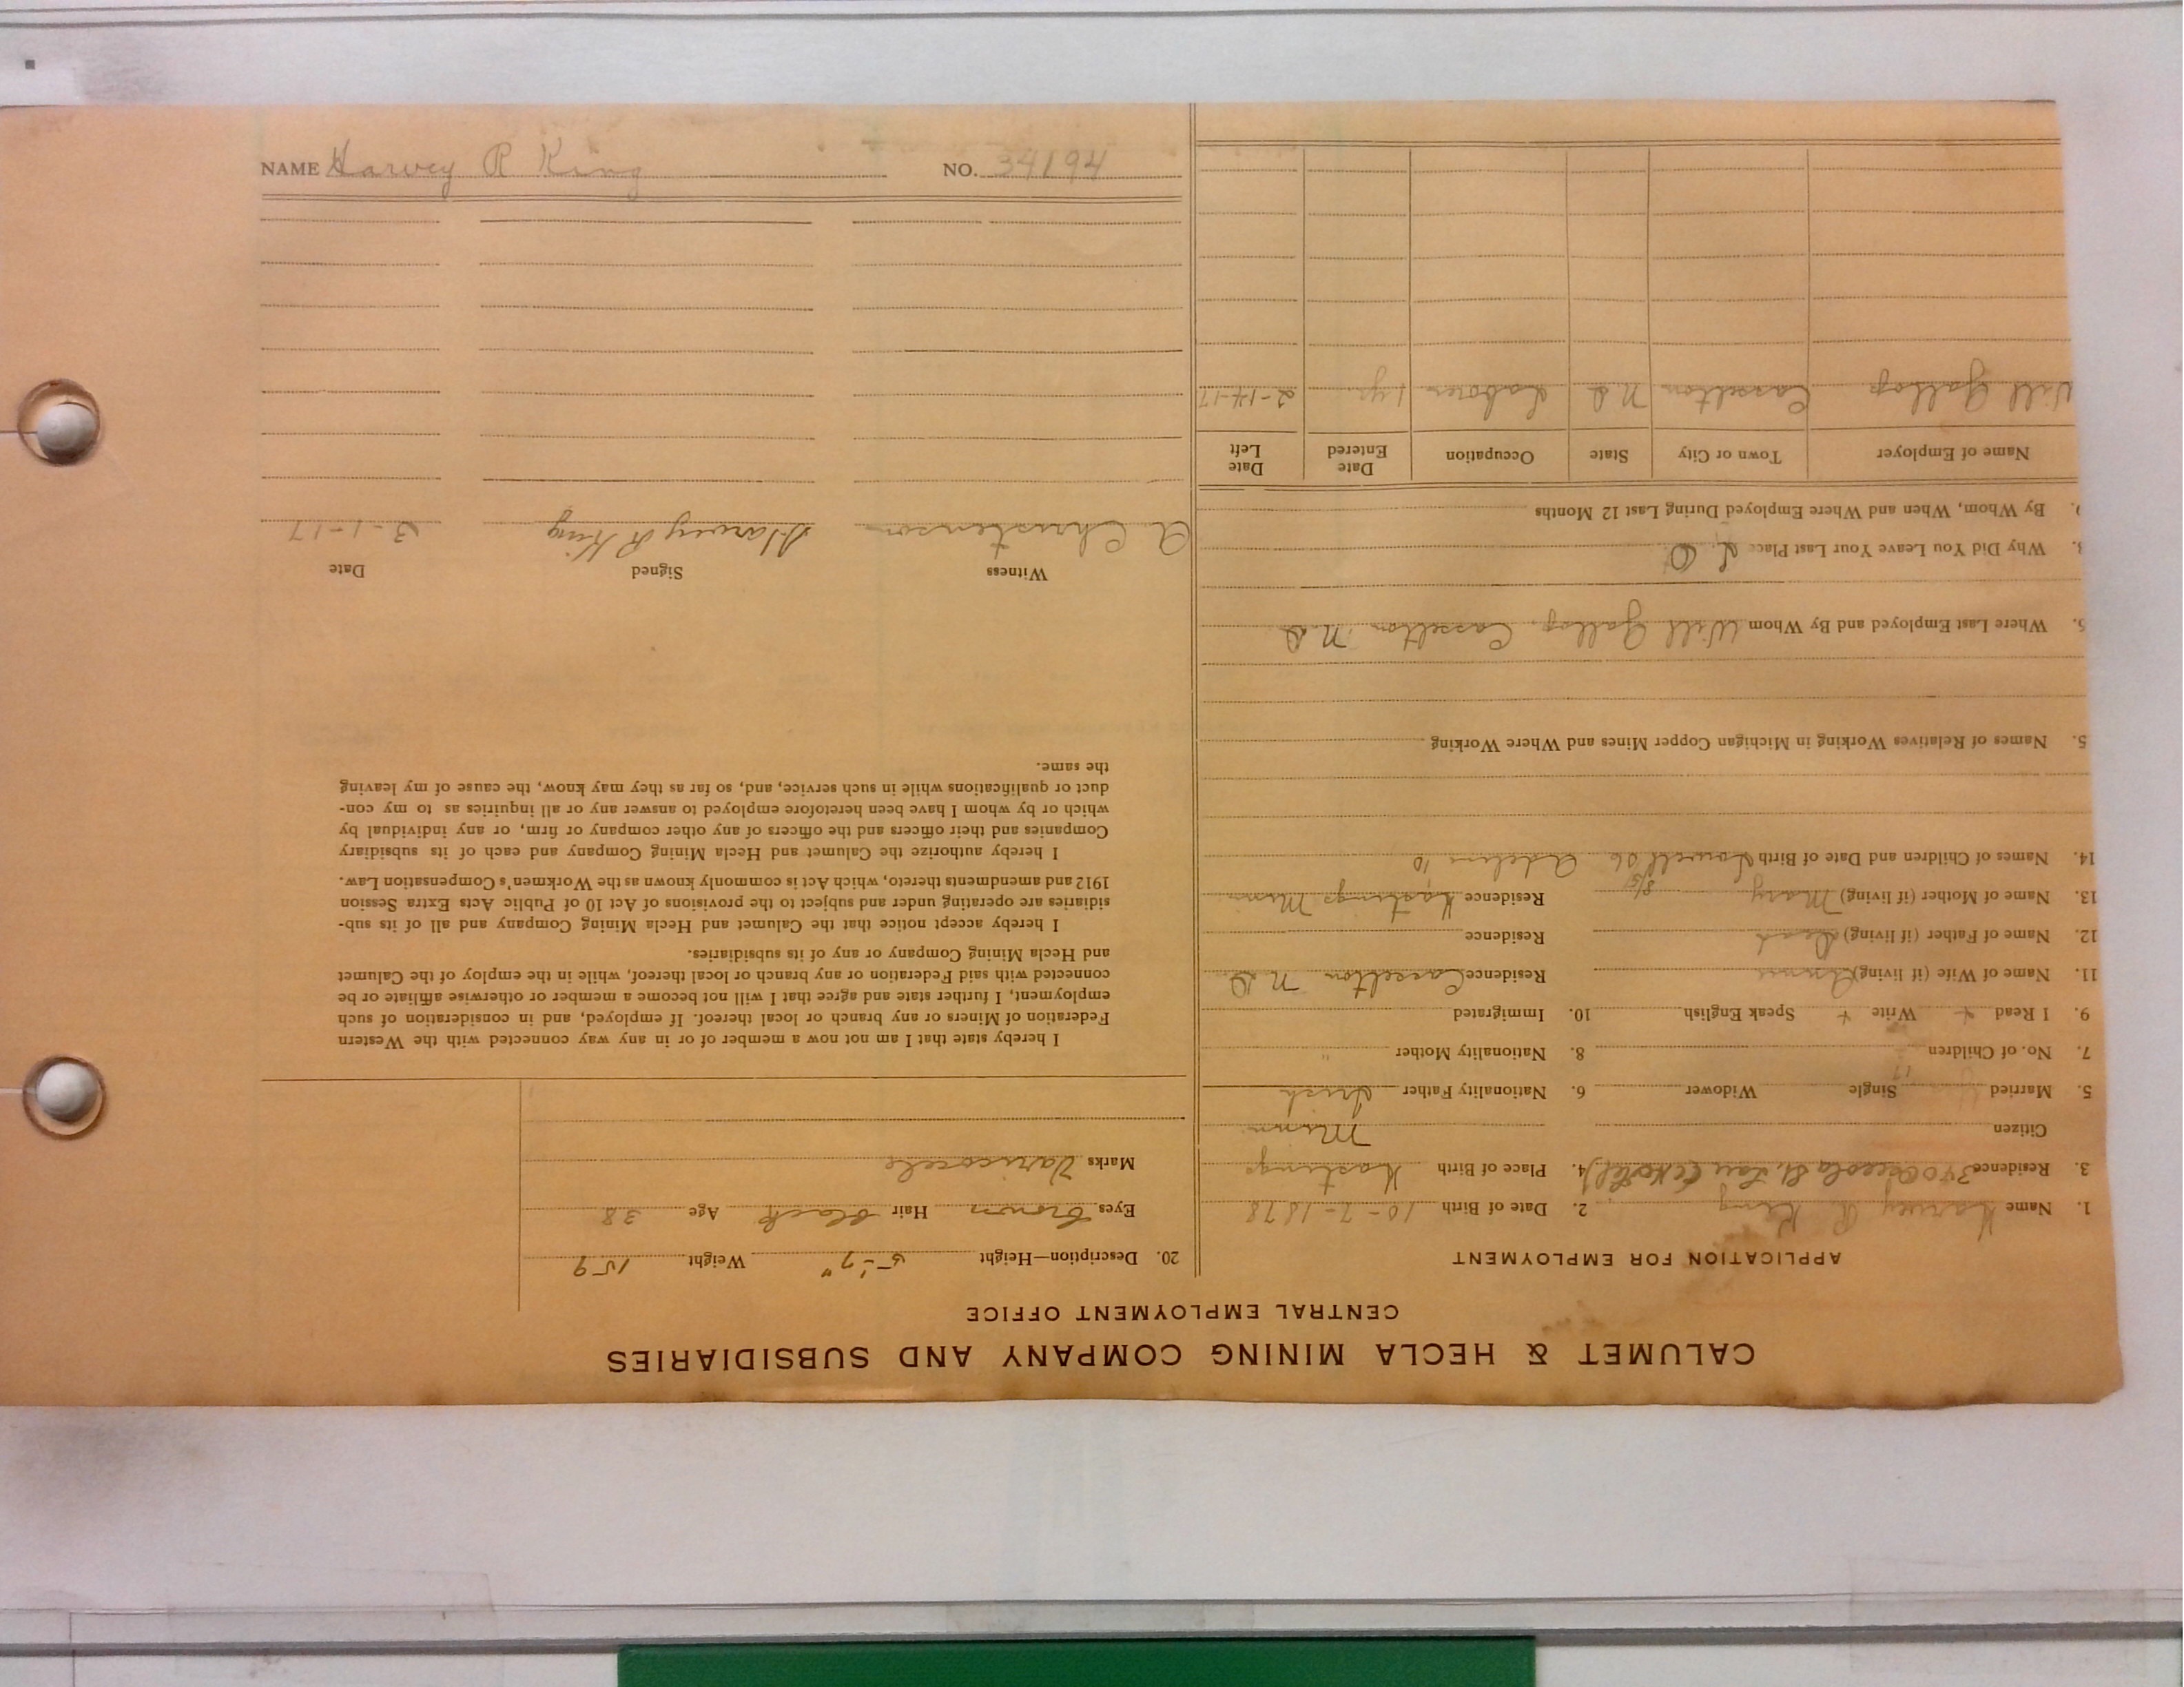 NAME Harvey R King NO. 34194
CALUMET & HECLA MINING COMPANY AND SUBSIDIARIES
CENTRAL EMPLOYMENT OFFICE
APPLICATION FOR EMPLOYMENT
1. Name Harvey R King 2. Date of Birth 10-7-1878
3. Residence 340 Osceola St. 4. Place of Birth Hastings
Citizen Minn
5. Married Single Widower 6. Nationality Father Irish
7. No. of Children 8. Nationality Mother "
9. I Read + Write + Speak English 10. Immigrated
11. Name of Wife (if living) Annie Residence Casselton N.D
12. Name of Father (if living) Dead Residence
13. Name of Mother (if living) Mary Residence Hastings Minn
14. Names of Children and Date of Birth Lowell 06 Adeline 10
5. Names of Relatives Working in Michigan Copper Mines and Where Working
6. Where Last Employed and By Whom Will Gallop, Casselton N.D
8. Why Did You Leave Your Last Place L. O.
9. By Whom, When and Where Employed During Last 12 Months
Name of Employer Town or City State Occupation Date Entered Date Left
Will Gallop Casselton N D Laborer 1 yr 2-14-17
20. Description—Height 5-'7" Weight 159
Eyes brown Hair black Age 38
Marks Varicocele
I hereby state that I am not now a member of or in any way connected with the Western
Federation of Miners or any branch or local thereof. If employed, and in consideration of such
employment, I further state and agree that I will not become a member or otherwise affiliate or be
connected with said Federation or any branch or local thereof, while in the employ of the Calumet
and Hecla Mining Company or any of its subsidiaries.
I hereby accept notice that the Calumet and Hecla Mining Company and all of its sub-
sidiaries are operating under and subject to the provisions of Act 10 of Public Acts Extra Session
1912 and amendments thereto, which Act is commonly known as the Workmen's Compensation Law.
I hereby authorize the Calumet and Hecla Mining Company and each of its subsidiary
Companies and their officers and the officers of any other company or firm, or any individual by
which or by whom I have been heretofore employed to answer any or all inquiries as to my con-
duct or qualifications while in such service, and, so far as they may know, the cause of my leaving
the same.
Witness Signed Date
A Christenson Harvey R King 3-1-17